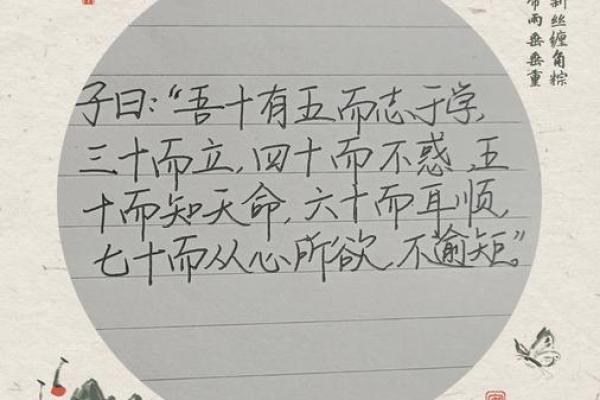 子曰:“吾十有五而志于学,
三十而立,四十而不惑,五
十而知天命,六十而耳顺,
七十而从心所欲,不逾矩。”
丝缠角粽
雨垂垂重